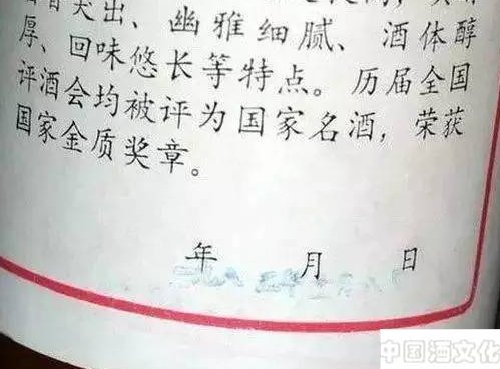 突出、幽雅细腻、酒体醇
厚、回味悠长等特点。历届全国
评酒会均被评为国家名酒，荣获
国家金质奖章。
年 月 日
中国酒文化